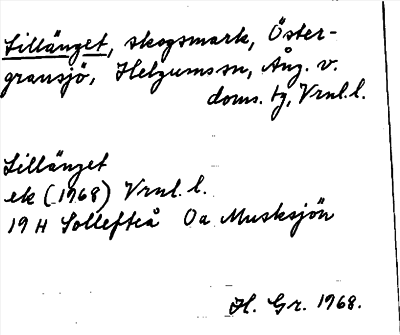 Lillänget, skogsmark, Öster-
gransjö, Helgums sn, Ång. v.
doms. tg, Vrnl. l.
Lillänget
ek (1968) Vrnl. l.
19 H Sollefteå 0a Musksjön
H. Gr. 1968.